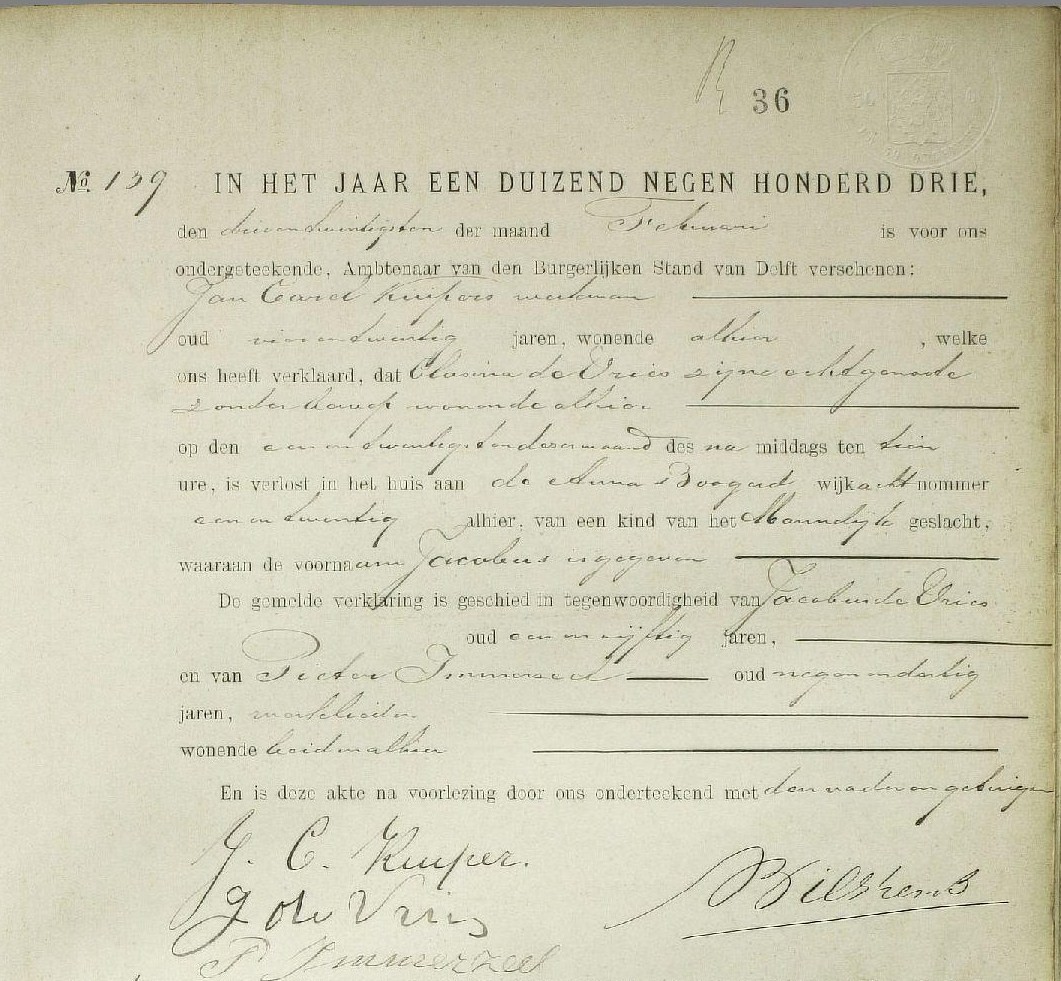 36
No. 139 IN HET JAAR EEN DUIZEND NEGEN HONDERD DRIE,
den drieentwintigsten der maand Februari is voor ons
ondergeteekende, Ambtenaar van den Burgerlijken Stand van Delft verschenen:
Jan Carel Kuipers werkman
oud vierentwintig jaren, wonende alhier, welke
ons heeft verklaard, dat Clasina de Vries zijne echtgenoote
zonder beroep wonende alhier
op den eenentwintigsten dezer maand des na middags ten tien
ure, is verlost in het huis aan de Anna Boogerd wijk acht nommer
eenentwintig alhier, van een kind van het Mannelijk geslacht,
waaraan de voornaam Jacobus is gegeven
De gemelde verklaring is geschied in tegenwoordigheid van Jacobus de Vries
oud eenenvijftig jaren,
en van Pieter Immerzeel oud negenendertig
jaren, werklieden
wonende beiden alhier
En is deze akte na voorlezing door ons onderteekend met den vader en getuigen
J. C. Kuiper.
J de Vries
P Immerzeel